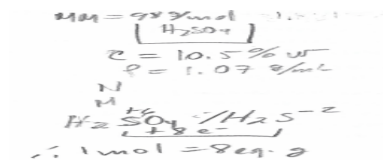 MM = 98 g/mol
H₂SO₄
C = 10.5% w
ρ = 1.07 g/mL
N
M
H₂SO₄ / H₂S⁻²
+8e⁻
∴ 1 mol = 8 eq. g